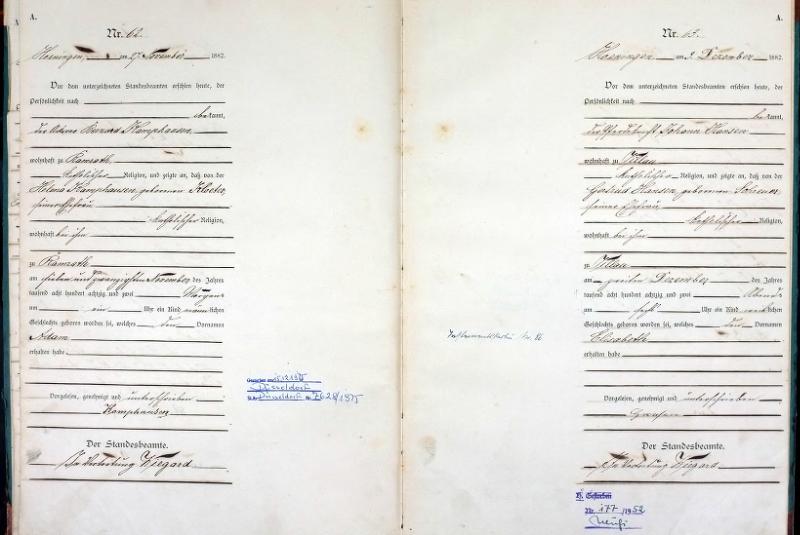 A.
Nr. 62.
Hoeningen, am 27 November 1882.
Vor dem unterzeichneten Standesbeamten erschien heute, der
Persönlichkeit nach
bekannt,
der Ackerer Kamphausen,
wohnhaft zu Ramrath
katholischer Religion, und zeigte an, daß von der
Helena Kamphausen geborenen Kloeter,
seiner Ehefrau
katholischer Religion,
wohnhaft bei ihm
zu Ramrath
am sieben und zwanzigsten November des Jahres
tausend acht hundert achtzig und zwei Morgens
um ein Uhr ein Kind männlichen
Geschlechts geboren worden sei, welches den Vornamen
Adam
erhalten habe
Vorgelesen, genehmigt und unterschrieben
Kamphausen
Der Standesbeamte.
In Vertretung Wiegard
Düsseldorf
Düsseldorf
A.
Nr. 63.
Hoeningen am 2 Dezember 1882
Vor dem unterzeichneten Standesbeamten erschien heute, der
Persönlichkeit nach
bekannt,
Johann Hansen
wohnhaft zu Villau
katholischer Religion, und zeigte an, daß von der
Hansen geborenen
seiner Ehefrau
katholischer Religion,
wohnhaft bei ihm
zu Villau
am zweiten Dezember des Jahres
tausend acht hundert achtzig und zwei Abends
um Uhr ein Kind weiblichen
Geschlechts geboren worden sei, welches den Vornamen
Elisabeth
erhalten habe
Vorgelesen, genehmigt und unterschrieben
Hansen
Der Standesbeamte.
In Vertretung Wiegard
Gestorben
Nr. 177/1952
Neuß